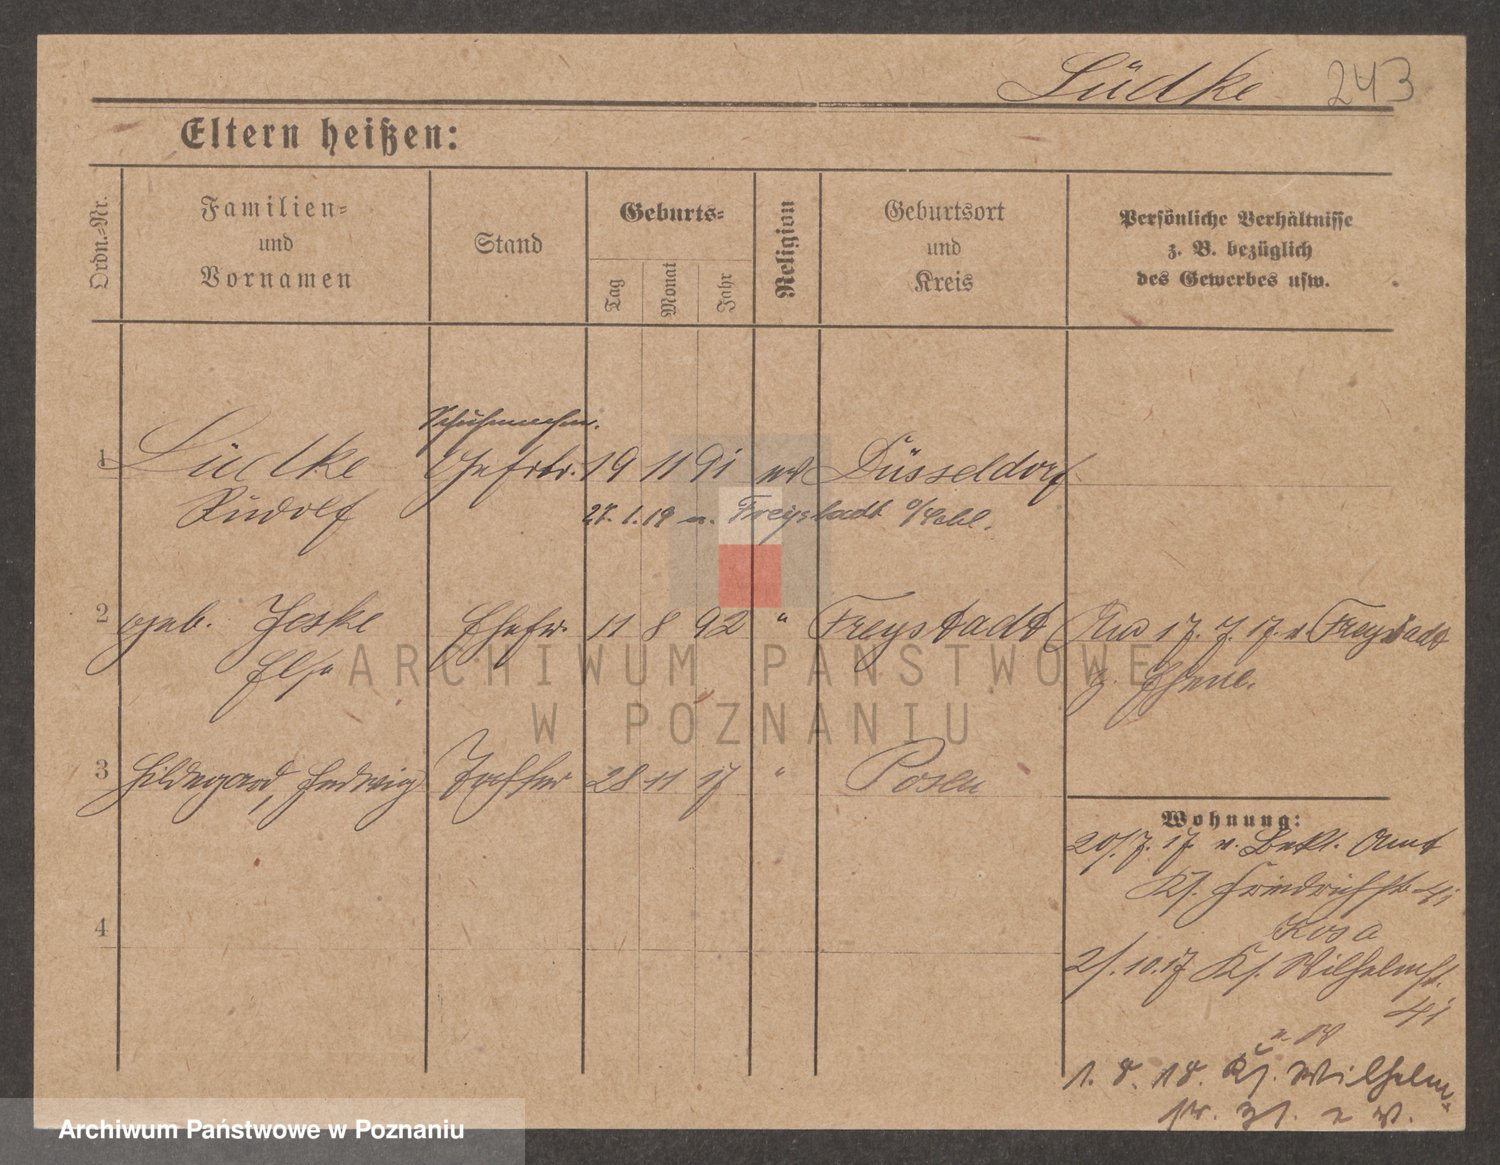 Lüdke 243
Eltern heißen:
Ordn.-Nr.
Familien-
und
Vornamen
Stand
Geburts-
Tag
Monat
Jahr
Religion
Geburtsort
und
Kreis
Persönliche Verhältnisse
z. B. bezüglich
des Gewerbes usw.
Schuhmacher.
1 Lüdke 19 11 91 Düsseldorf
Rudolf
27. 1. 19 n. Freystadt
2 geb. Jeske Ehefr. 11 8 92 " Freystadt 17. 7. 17. v. Freystadt
Else
z. Ehem.
3 Hildegard, Hedwig Tochter 28 11 17 " Posen
4
Wohnung:
20/7. 17 v. Amt
Friedrichstr. 41
Kosa
2/. 10. 17 Wilhelmst.
41
1. 8. 18. Wilhelm-
str.
ARCHIWUM PAŃSTWOWE
W POZNANIU
Archiwum Państwowe w Poznaniu